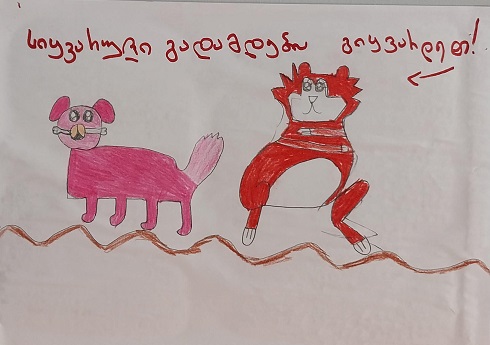 სიყვარული გადამდებია გიყვარდეთ!